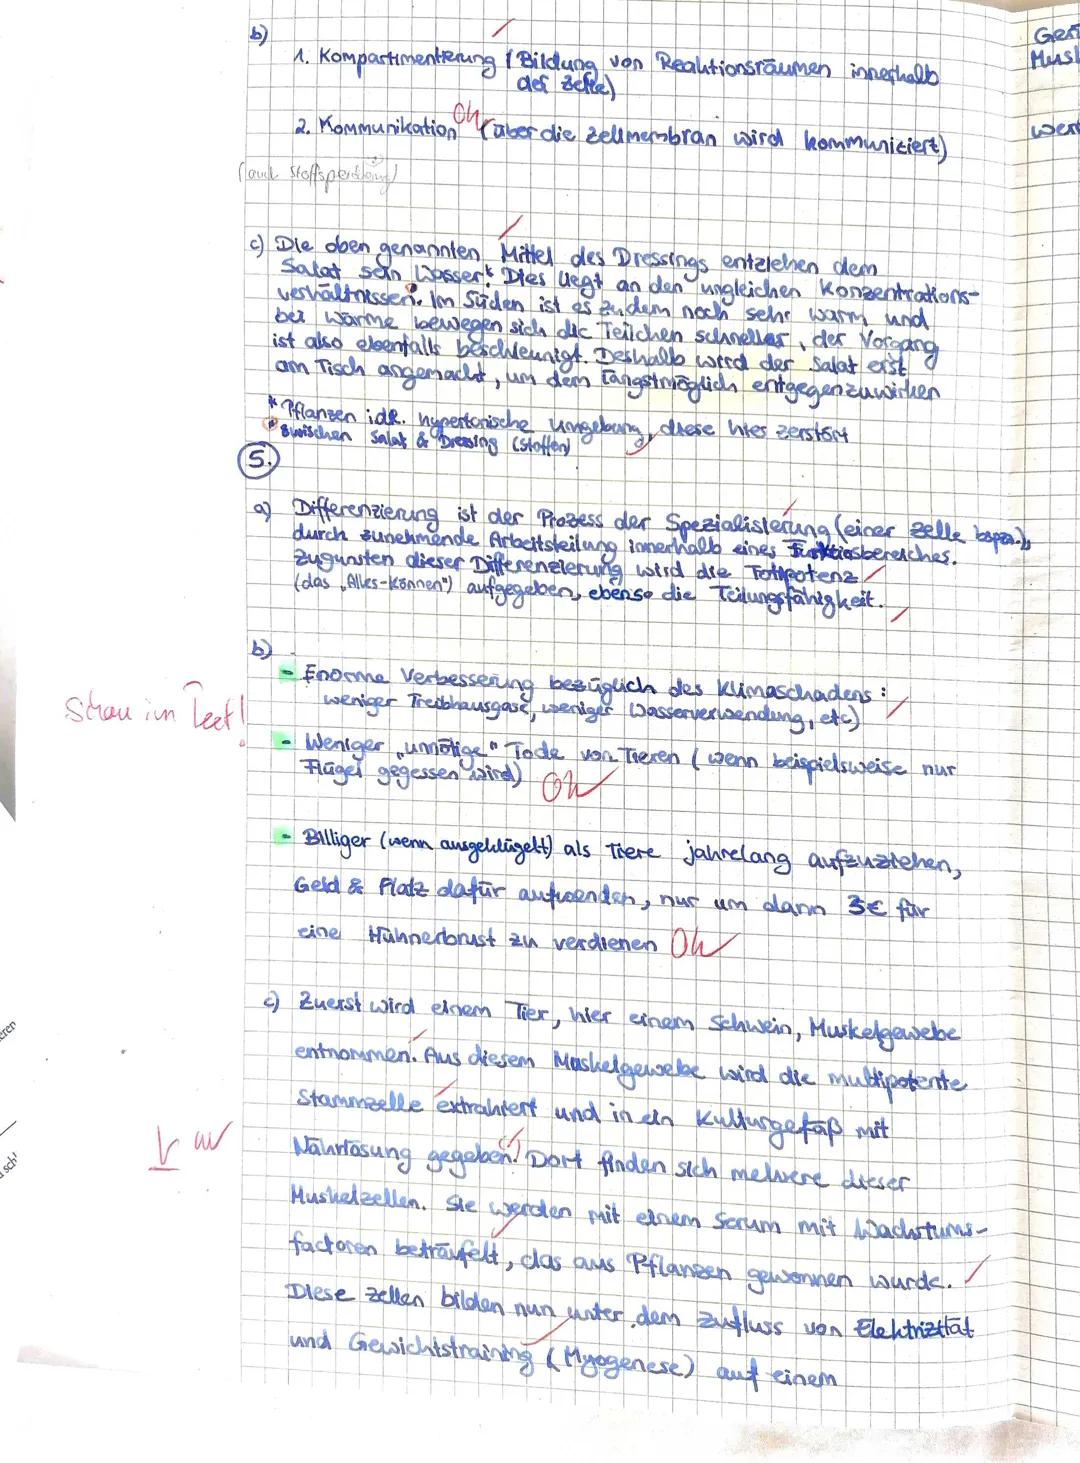 b)
1. Kompartimentierung (Bildung von Reaktionsräumen innerhalb
der Zelle)
Ok
2. Kommunikation (über die Zellmembran wird kommuniziert)
(auch
c) Die oben genannten Mittel des Dressings entziehen dem
Salat sein Wasser.* Dies liegt an den ungleichen Konzentrations-
verhältnissen. Im Süden ist es zudem noch sehr warm und
bei Wärme bewegen sich die Teilchen schneller, der Vorgang
ist also ebenfalls beschleunigt. Deshalb wird der Salat erst
am Tisch angemacht, um dem längstmöglich entgegenzuwirken
* Pflanzen idR. hypertonische Umgebung, diese hier zerstört
zwischen Salat & Dressing (Stoffen)
5.
a) Differenzierung ist der Prozess der Spezialisierung (einer Zelle bspw.),
durch zunehmende Arbeitsteilung innerhalb eines Funktionsbereiches.
Zugunsten dieser Differenzierung wird die Totipotenz
(das „Alles-können") aufgegeben, ebenso die Teilungsfähigkeit.
b)
- Enorme Verbesserung bezüglich des Klimaschadens:
weniger Treibhausgase, weniger Wasserverwendung, etc)
- Weniger „unnötige" Tode von Tieren (wenn beispielsweise nur
Flügel gegessen wird) Ok
- Billiger (wenn ausgeklügelt) als Tiere jahrelang aufzuziehen,
Geld & Platz dafür aufwenden, nur um dann 3€ für
eine Hühnerbrust zu verdienen Ok
c) Zuerst wird einem Tier, hier einem Schwein, Muskelgewebe
entnommen. Aus diesem Muskelgewebe wird die multipotente
Stammzelle extrahiert und in ein Kulturgefäß mit
Nährlösung gegeben. Dort finden sich mehrere dieser
Muskelzellen. Sie werden mit einem Serum mit Wachstums-
factoren beträufelt, das aus Pflanzen gewonnen wurde.
Diese Zellen bilden nun unter dem Zufluss von Elektrizität
und Gewichtstraining (Myogenese) auf einem